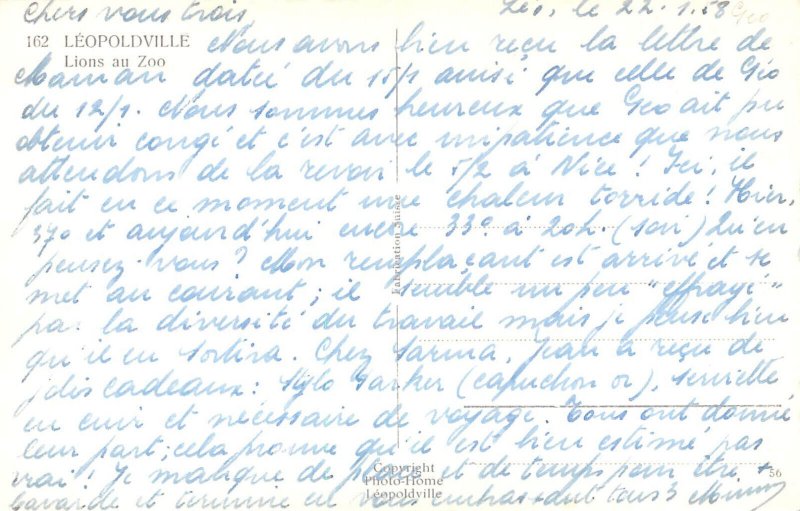 Chers vous trois, Léo, le 22.1.58
162 LÉOPOLDVILLE
Lions au Zoo
Nous avons bien reçu la lettre de
Maman datée du 15/1 ainsi que celle de Géo
du 12/1. Nous sommes heureux que Géo ait pu
obtenir congé et c'est avec impatience que nous
attendons de la revoir le 5/2 à Nice! Ici, il
fait en ce moment une chaleur torride! Hier,
37° et aujourd'hui encore 33° à 20h. (soir) Qu'en
pensez-vous? Mon remplaçant est arrivé et se
met au courant; il semble un peu "effrayé"
par la diversité du travail mais je pense bien
qu'il en sortira. Chez Sarma, Jean a reçu de
jolis cadeaux: Stylo Parker (capuchon or), serviette
en cuir et nécessaire de voyage. Tous ont donné
leur part; cela prouve qu'il est bien estimé pas
vrai! Je manque de place et de temps pour être +
bavarde et termine en vous embrassant tous 3
Fabrication Suisse
Copyright
Photo-Home
Léopoldville
56